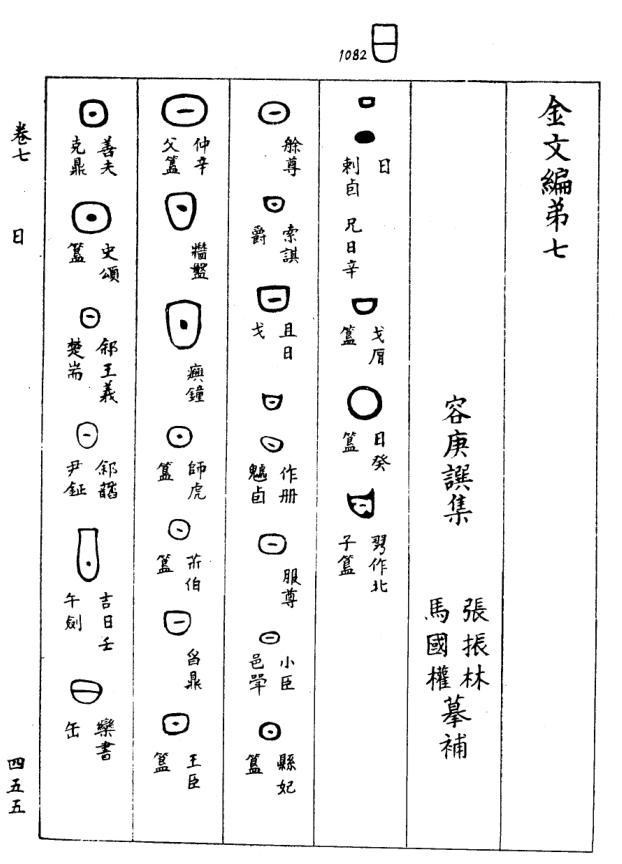 1082
金文編弟七
容庚譔集
張振林
馬國權
摹補
日
剌卣
兄日辛
戈厝簋
日癸簋
作北子簋
艅尊
索諆爵
且日戈
作册䰧卣
服尊
小臣邑斝
縣妃簋
仲辛父簋
牆盤
𤼈鐘
師虎簋
伯簋
舀鼎
王臣簋
善夫克鼎
史頌簋
郐王義楚耑
郐尹鉦
吉日壬午劍
欒書缶
卷七
日
四五五